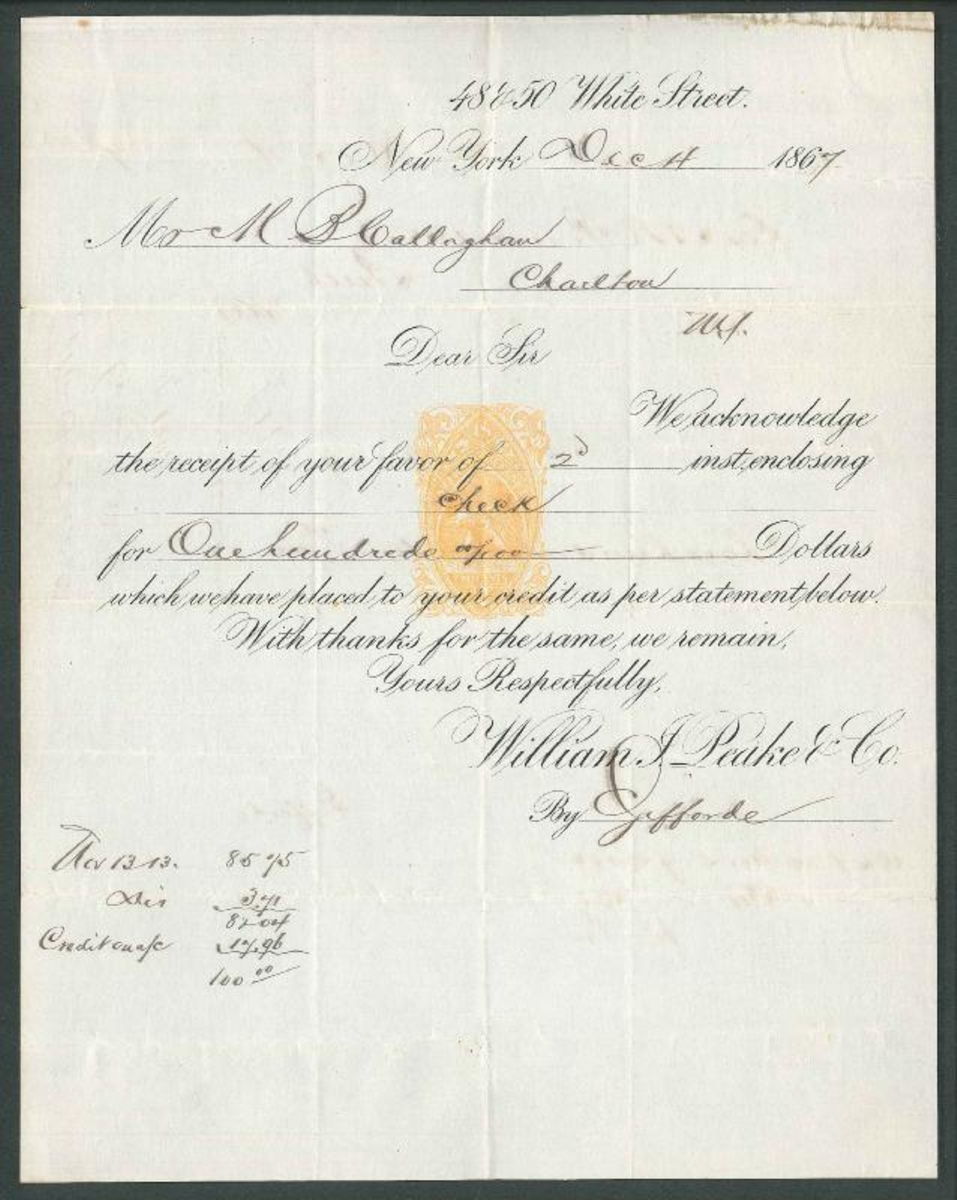 48 & 50 White Street.
New York Dec 4 1867
Mr M B Callaghan
Charlton
Dear Sir
We acknowledge
the receipt of your favor of 2d inst, enclosing
check
for One hundrede 00/100 Dollars
which we have placed to your credit as per statement below.
With thanks for the same, we remain,
Yours Respectfully,
William I. Peake & Co.
By Gifforde
Nov 13-13. 85 75
Dis 3.71
82 04
Credit on a/c 17.96
100 00